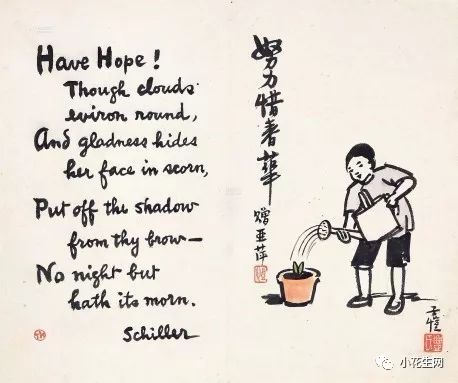 Have Hope!
Though clouds
eviron round,
And gladness hides
her face in scorn,
Put off the shadow
from thy brow—
No night but
hath its morn.
Schiller
努力惜春華
贈亚萍
子愷
小花生网